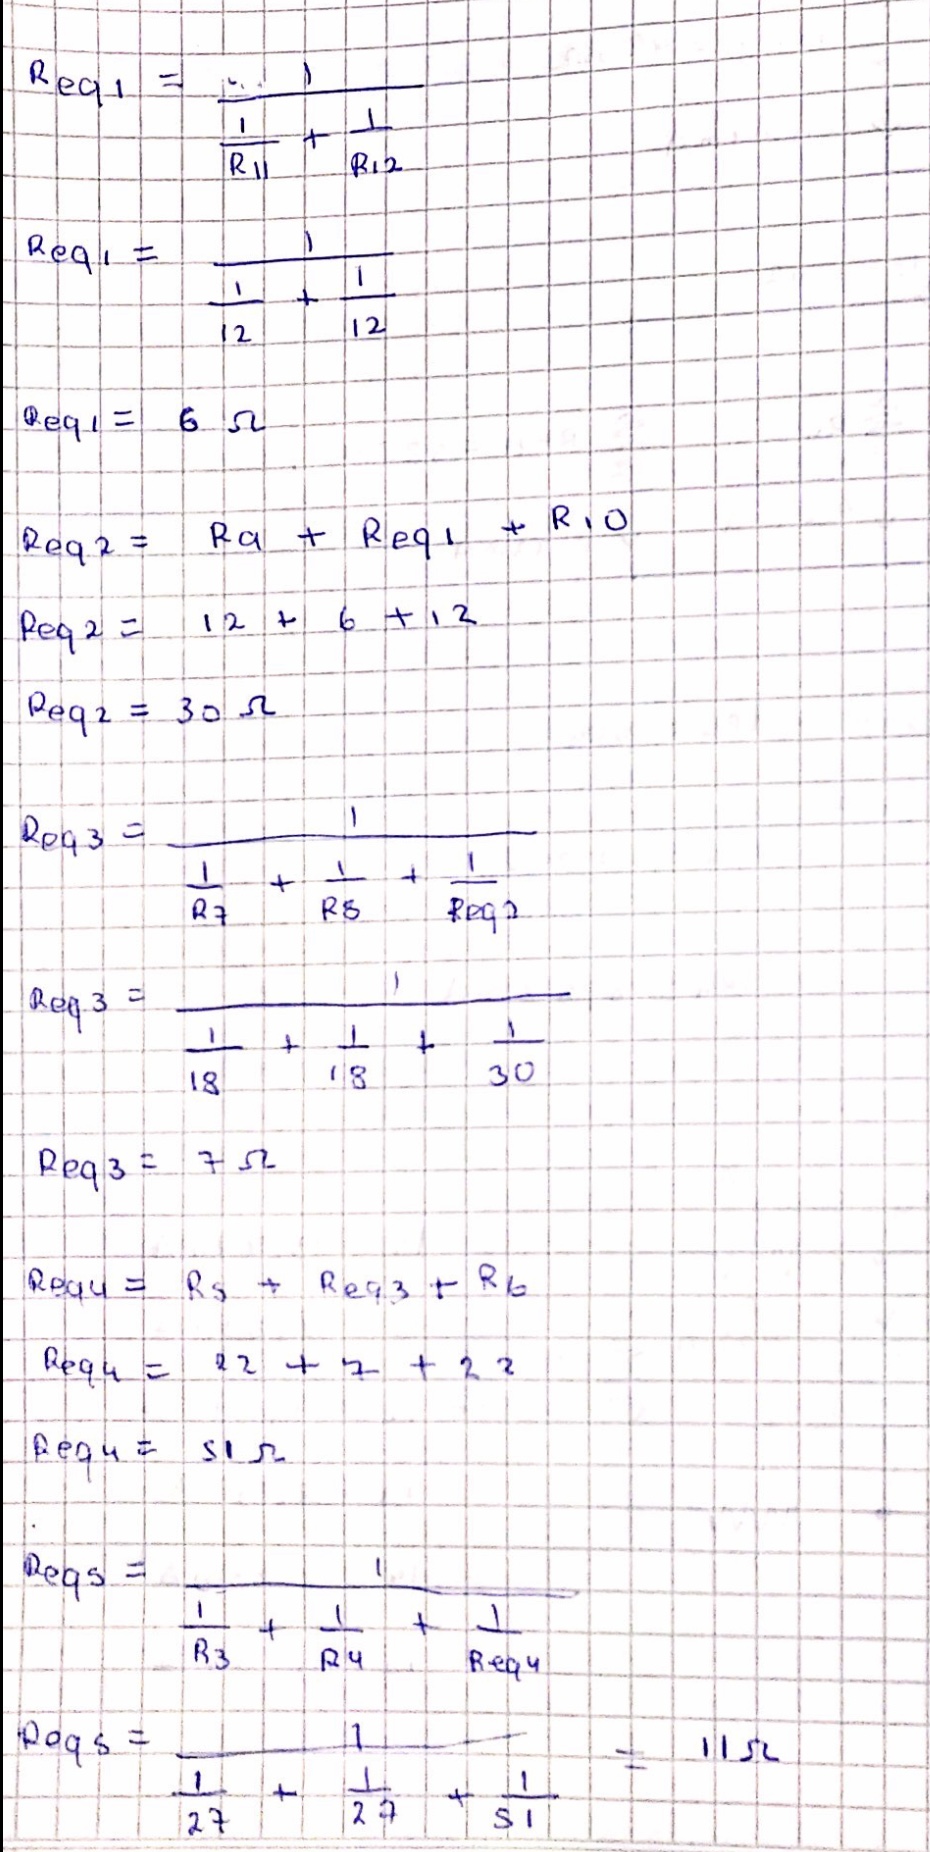 Req1 = 1 / (1/R11 + 1/R12)
Req1 = 1 / (1/12 + 1/12)
Req1 = 6 Ω
Req2 = R9 + Req1 + R10
Req2 = 12 + 6 + 12
Req2 = 30 Ω
Req3 = 1 / (1/R7 + 1/R8 + 1/Req2)
Req3 = 1 / (1/18 + 1/18 + 1/30)
Req3 = 7 Ω
Req4 = R5 + Req3 + R6
Req4 = 22 + 7 + 22
Req4 = 51 Ω
Req5 = 1 / (1/R3 + 1/R4 + 1/Req4)
Req5 = 1 / (1/27 + 1/27 + 1/51) = 11 Ω